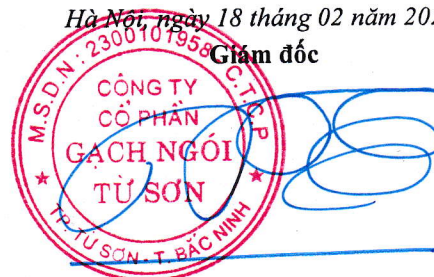 Hà Nội, ngày 18 tháng 02 năm 20
Giám đốc
M.S.D.N: 2300101958-C.T.C.P
CÔNG TY
CỔ PHẦN
GẠCH NGÓI
TỪ SƠN
TP. TỪ SƠN - T. BẮC NINH